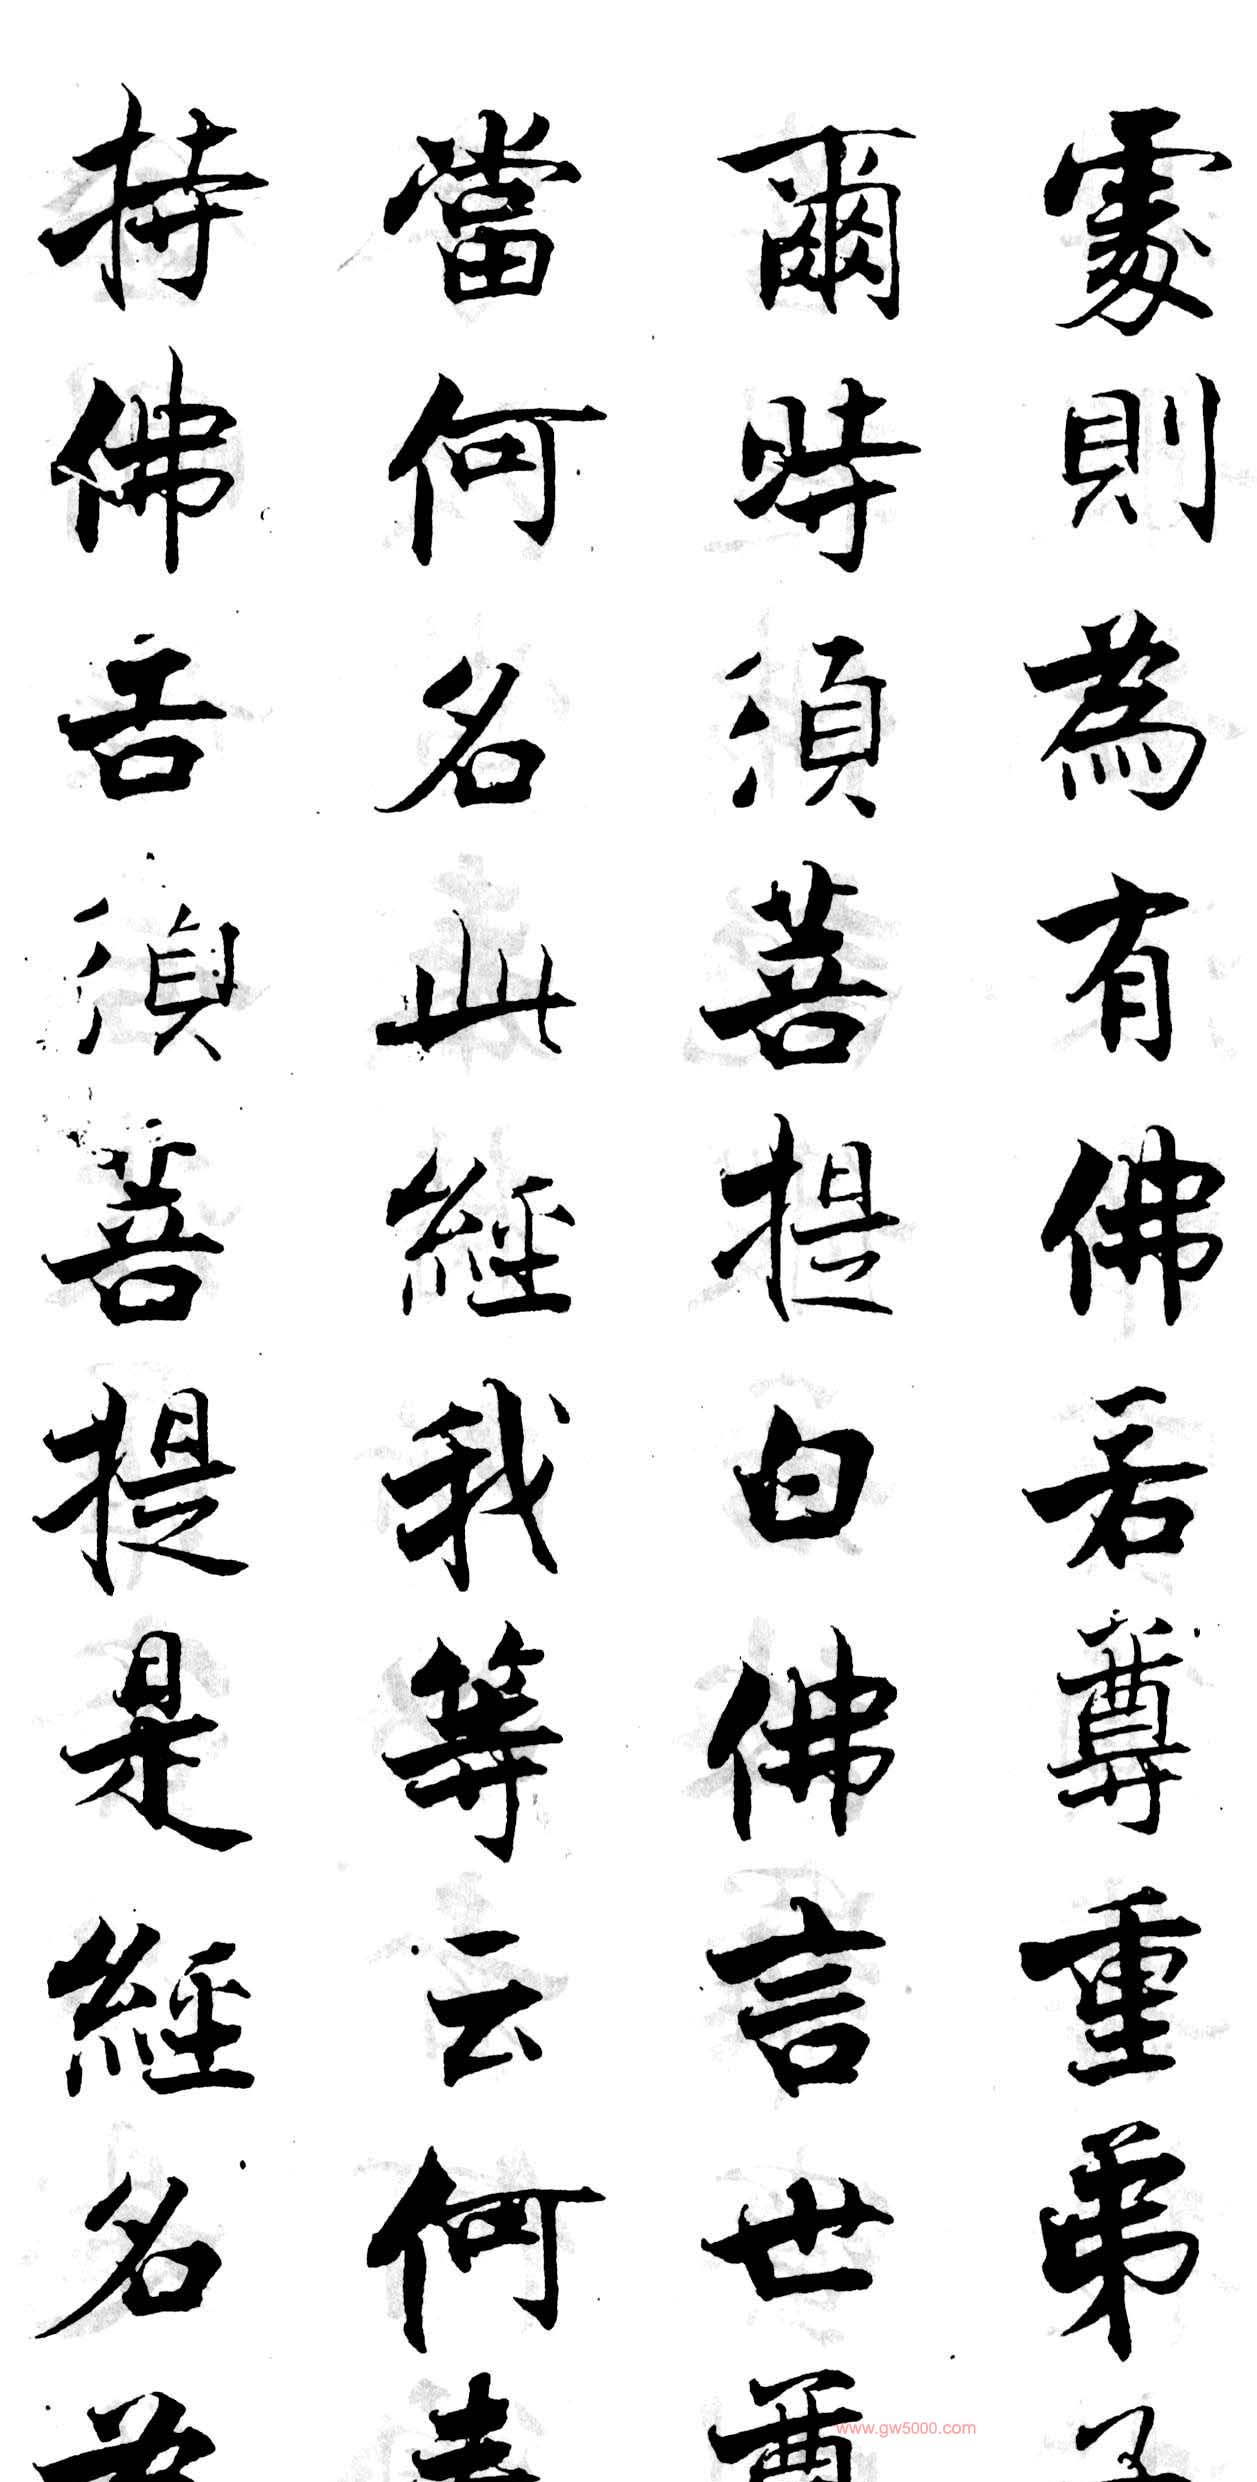 處則為有佛若尊重弟子
爾時須菩提白佛言世尊
當何名此經我等云何奉
持佛告須菩提是經名為
www.gw5000.com